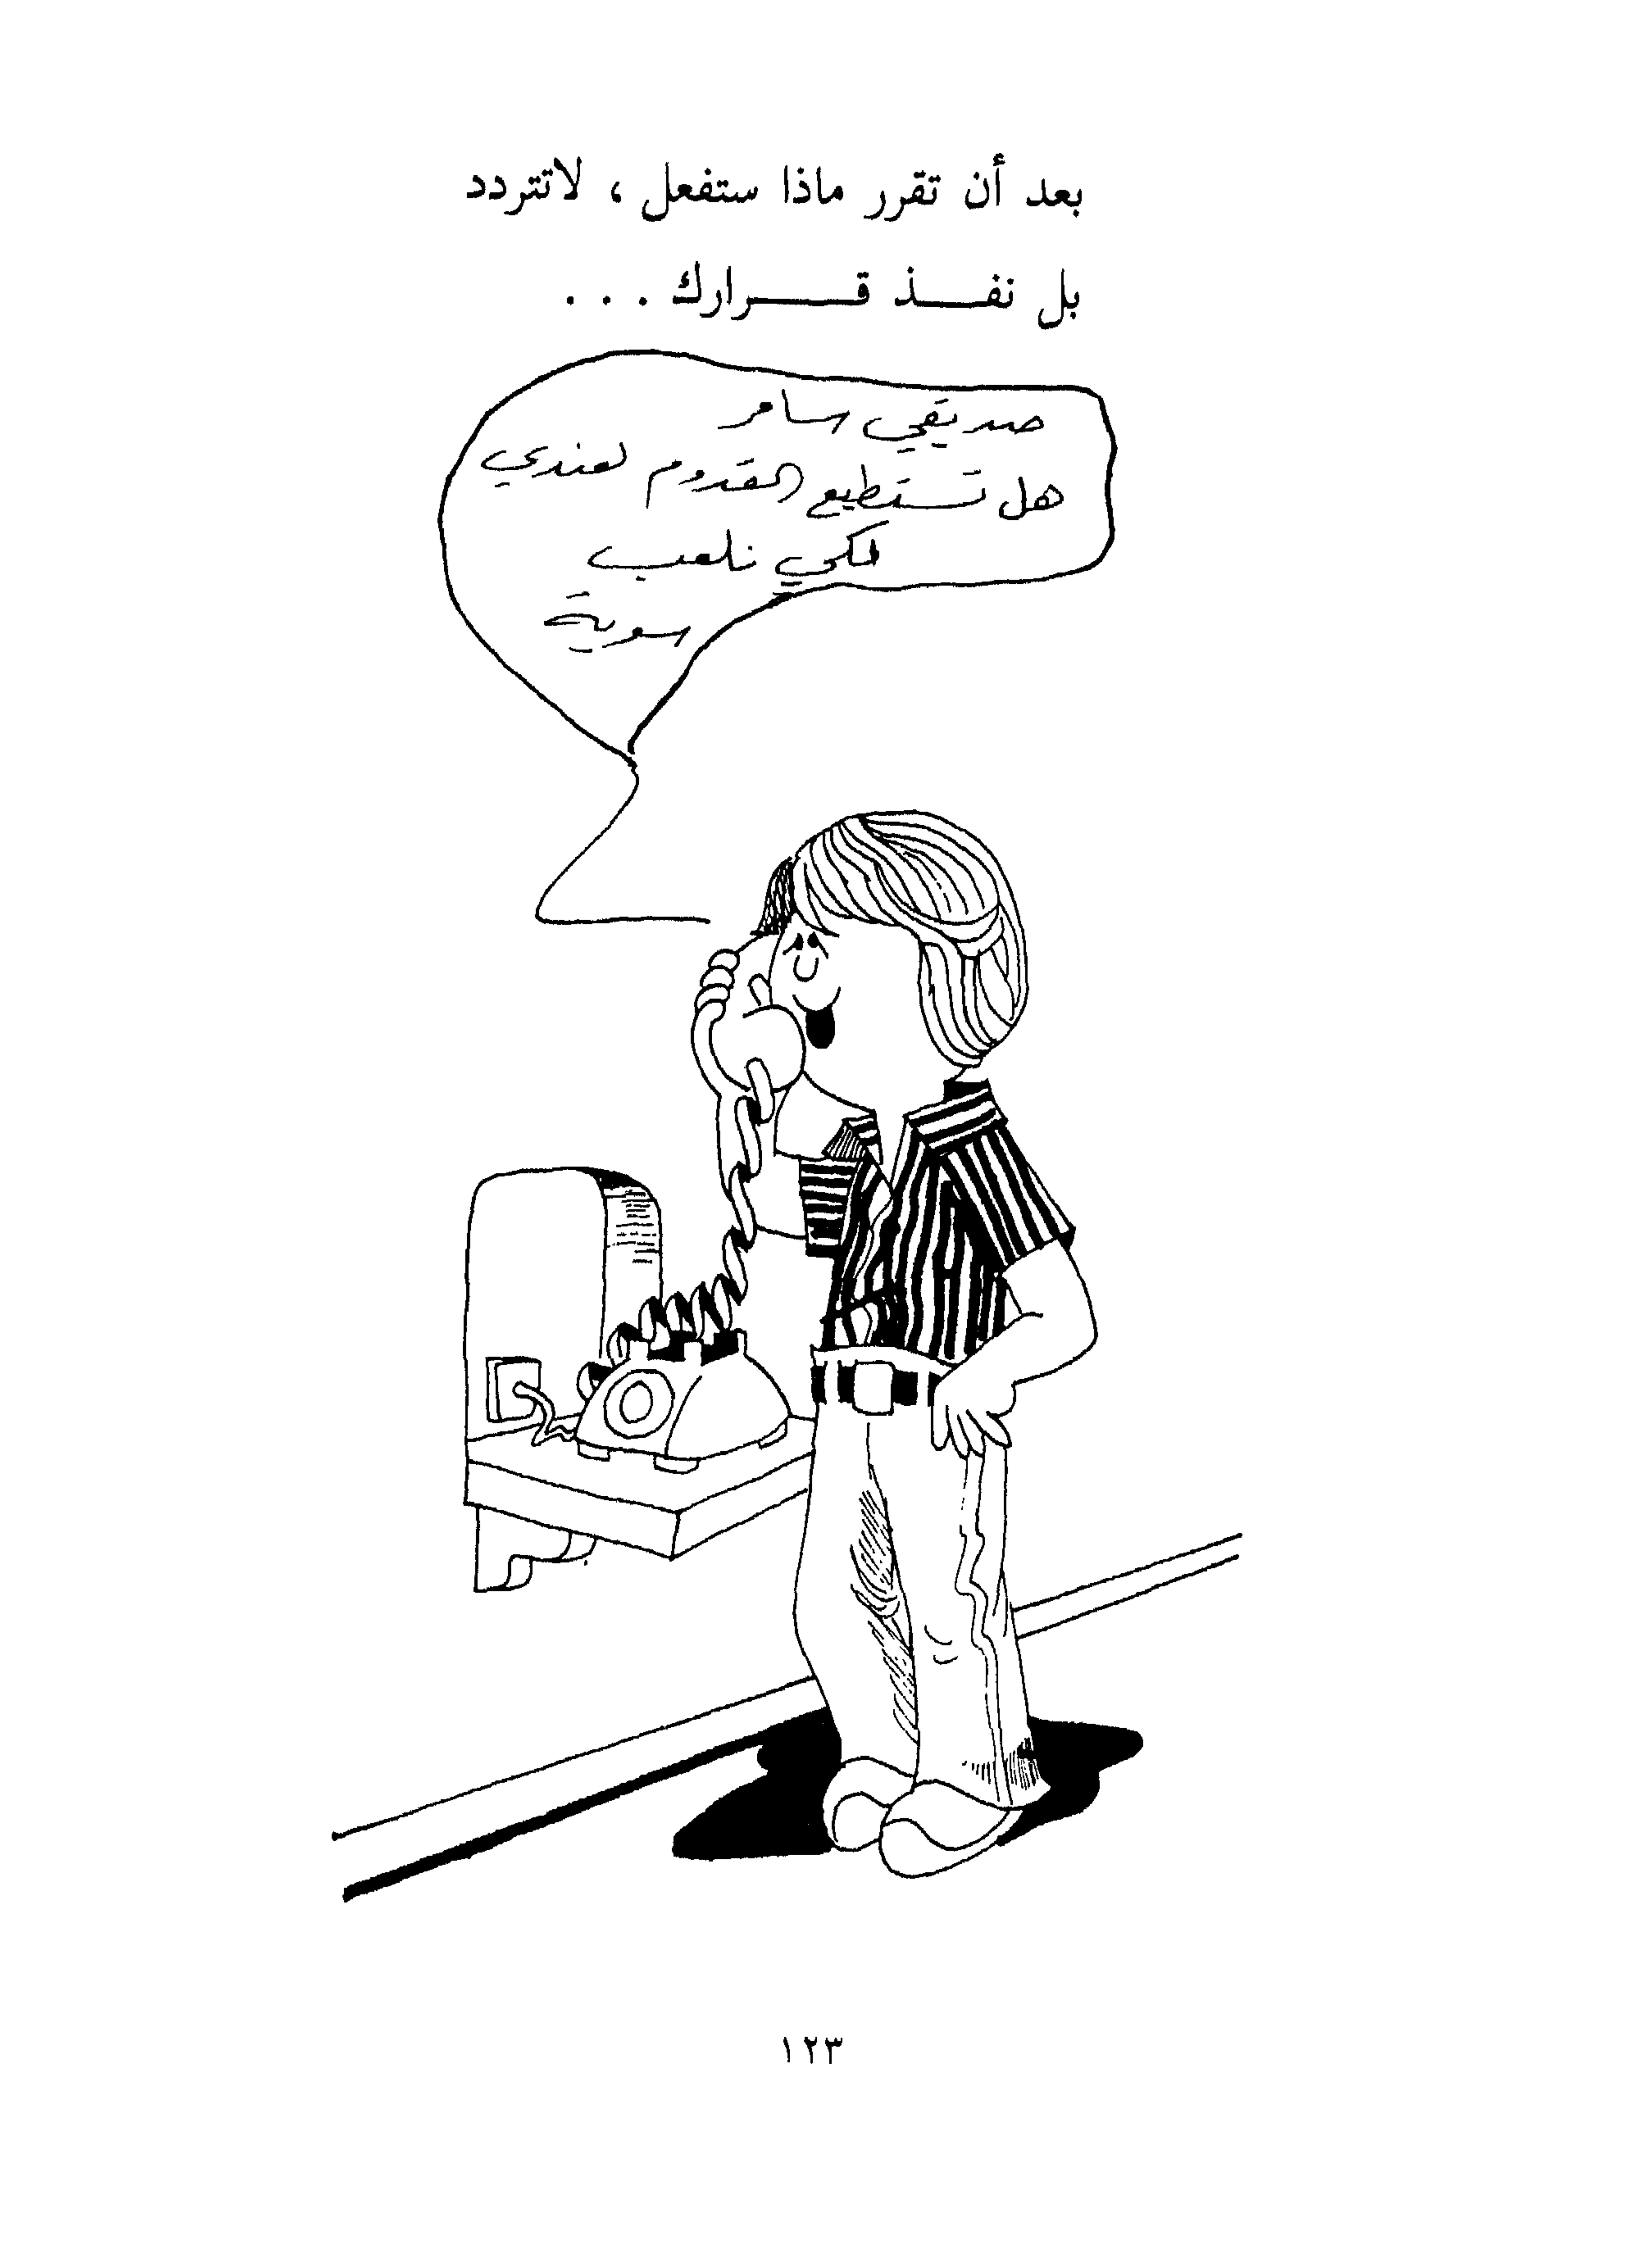 بعد أن تقرر ماذا ستفعل ، لاتتردد
بل نفـــذ قــــرارك . . .
صديقي سامر
هل تستطيع القدوم لعندي
لكي نلعب
سوية
١٢٣